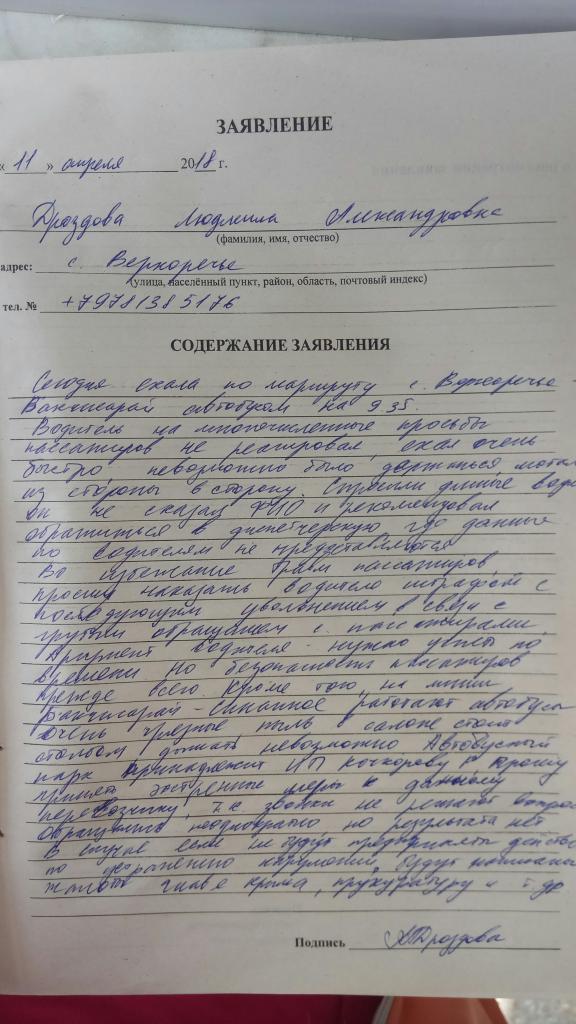 ЗАЯВЛЕНИЕ
« 11 » апреля 2018 г.
Дроздова Людмила Александровна
(фамилия, имя, отчество)
адрес: с. Верхоречье
(улица, населённый пункт, район, область, почтовый индекс)
тел. № +79781385176
СОДЕРЖАНИЕ ЗАЯВЛЕНИЯ
Сегодня ехала по маршруту с. Верхоречье -
Бахчисарай автобусом на 9 35.
Водитель на многочисленные просьбы
пассажиров не реагировал, ехал очень
быстро невозможно было держаться мотало
из стороны в сторону. Спросили данные води
он не сказал ФИО и рекомендовал
обратиться в диспетчерскую где данные
по водителям не предоставляются
Во избежание травм пассажиров
просим наказать водителя штрафом с
последующим увольнением в связи с
грубым обращением с пассажирами.
Аргумент водителя - нужно успеть по
времени. Но безопасность пассажиров
прежде всего. Кроме того, на линии
Бахчисарай - Синапное работают автобусы
очень грязные пыль в салоне стоит
столбом дышать невозможно. Автобусный
парк принадлежит ИП Кочкорову Прошу
принять экстренные меры к данному
перевозчику, т.к звонки не решают вопрос
обращались неоднократно но результата нет
В случае если не будут предприняты действ
по устранению нарушений, будут написаны
жалобы главе Крыма, прокуратуру и т.др
Подпись Дроздова